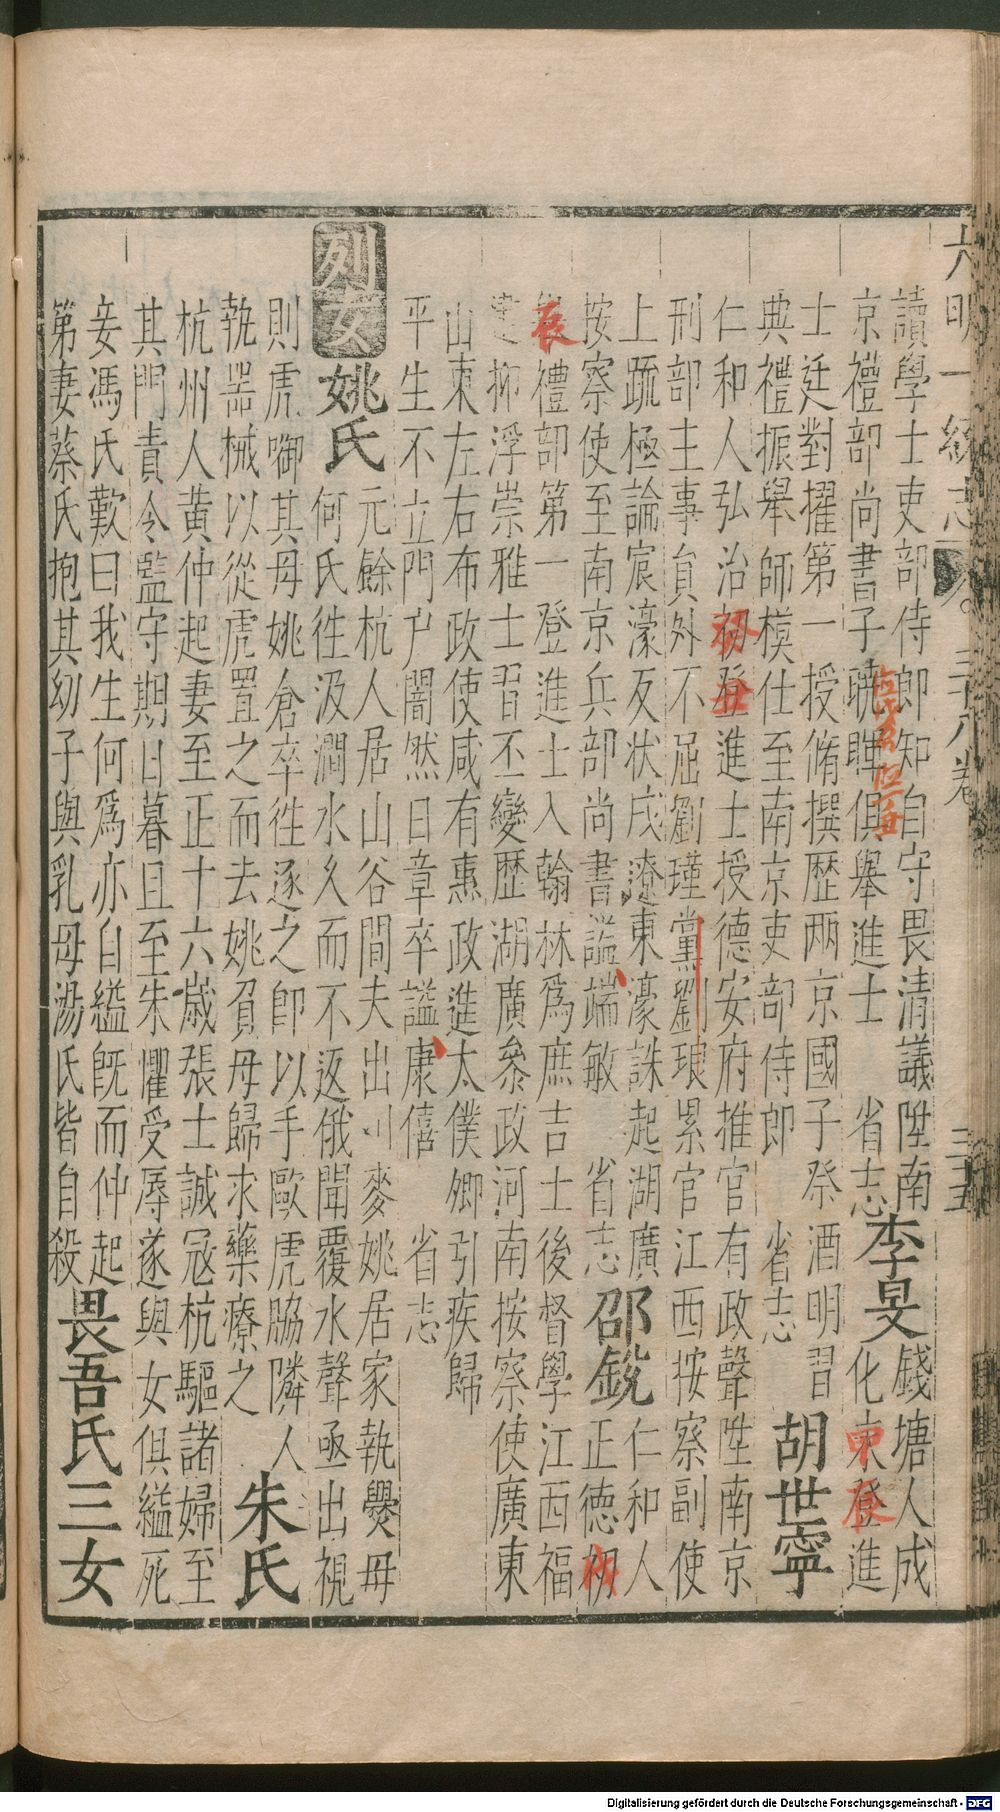 大明一統志 三十八卷 三十五
讀學士吏部侍郎知自守畏清議陞南
京禮部尚書子曉暉俱舉進士 省志 李旻 錢塘人成化末登進
士廷對擢第一授脩撰歷兩京國子祭酒明習
典禮振舉師模仕至南京吏部侍郎 省志 胡世寧
仁和人弘治初登進士授德安府推官有政聲陞南京
刑部主事員外不屈劉瑾黨劉琅累官江西按察副使
上疏極論宸濠反状戍遼東濠誅起湖廣
按察使至南京兵部尚書謚端敏 省志 邵銳 仁和人正德初
禮部第一登進士入翰林爲庶吉士後督學江西福
建抑浮崇雅士習丕變歷湖廣叅政河南按察使廣東
山東左右布政使咸有惠政進太僕卿引疾歸
平生不立門户闇然日章卒謚康僖 省志
列女 姚氏 元餘杭人居山谷間夫出刈麥姚居家執爨母
何氏徃汲澗水久而不返俄聞覆水聲亟出視
則虎啣其母姚倉卒徃逐之即以手歐虎脇隣人
執器械以從虎置之而去姚負母歸求藥療之 朱氏
杭州人黄仲起妻至正十六歲張士誠寇杭驅諸婦至
其門責令監守期日暮且至朱懼受辱遂與女俱縊死
妾馮氏歎曰我生何爲亦自縊既而仲起
第妻蔡氏抱其幼子與乳母湯氏皆自殺 畏吾氏三女
癸丑
辰
甲辰